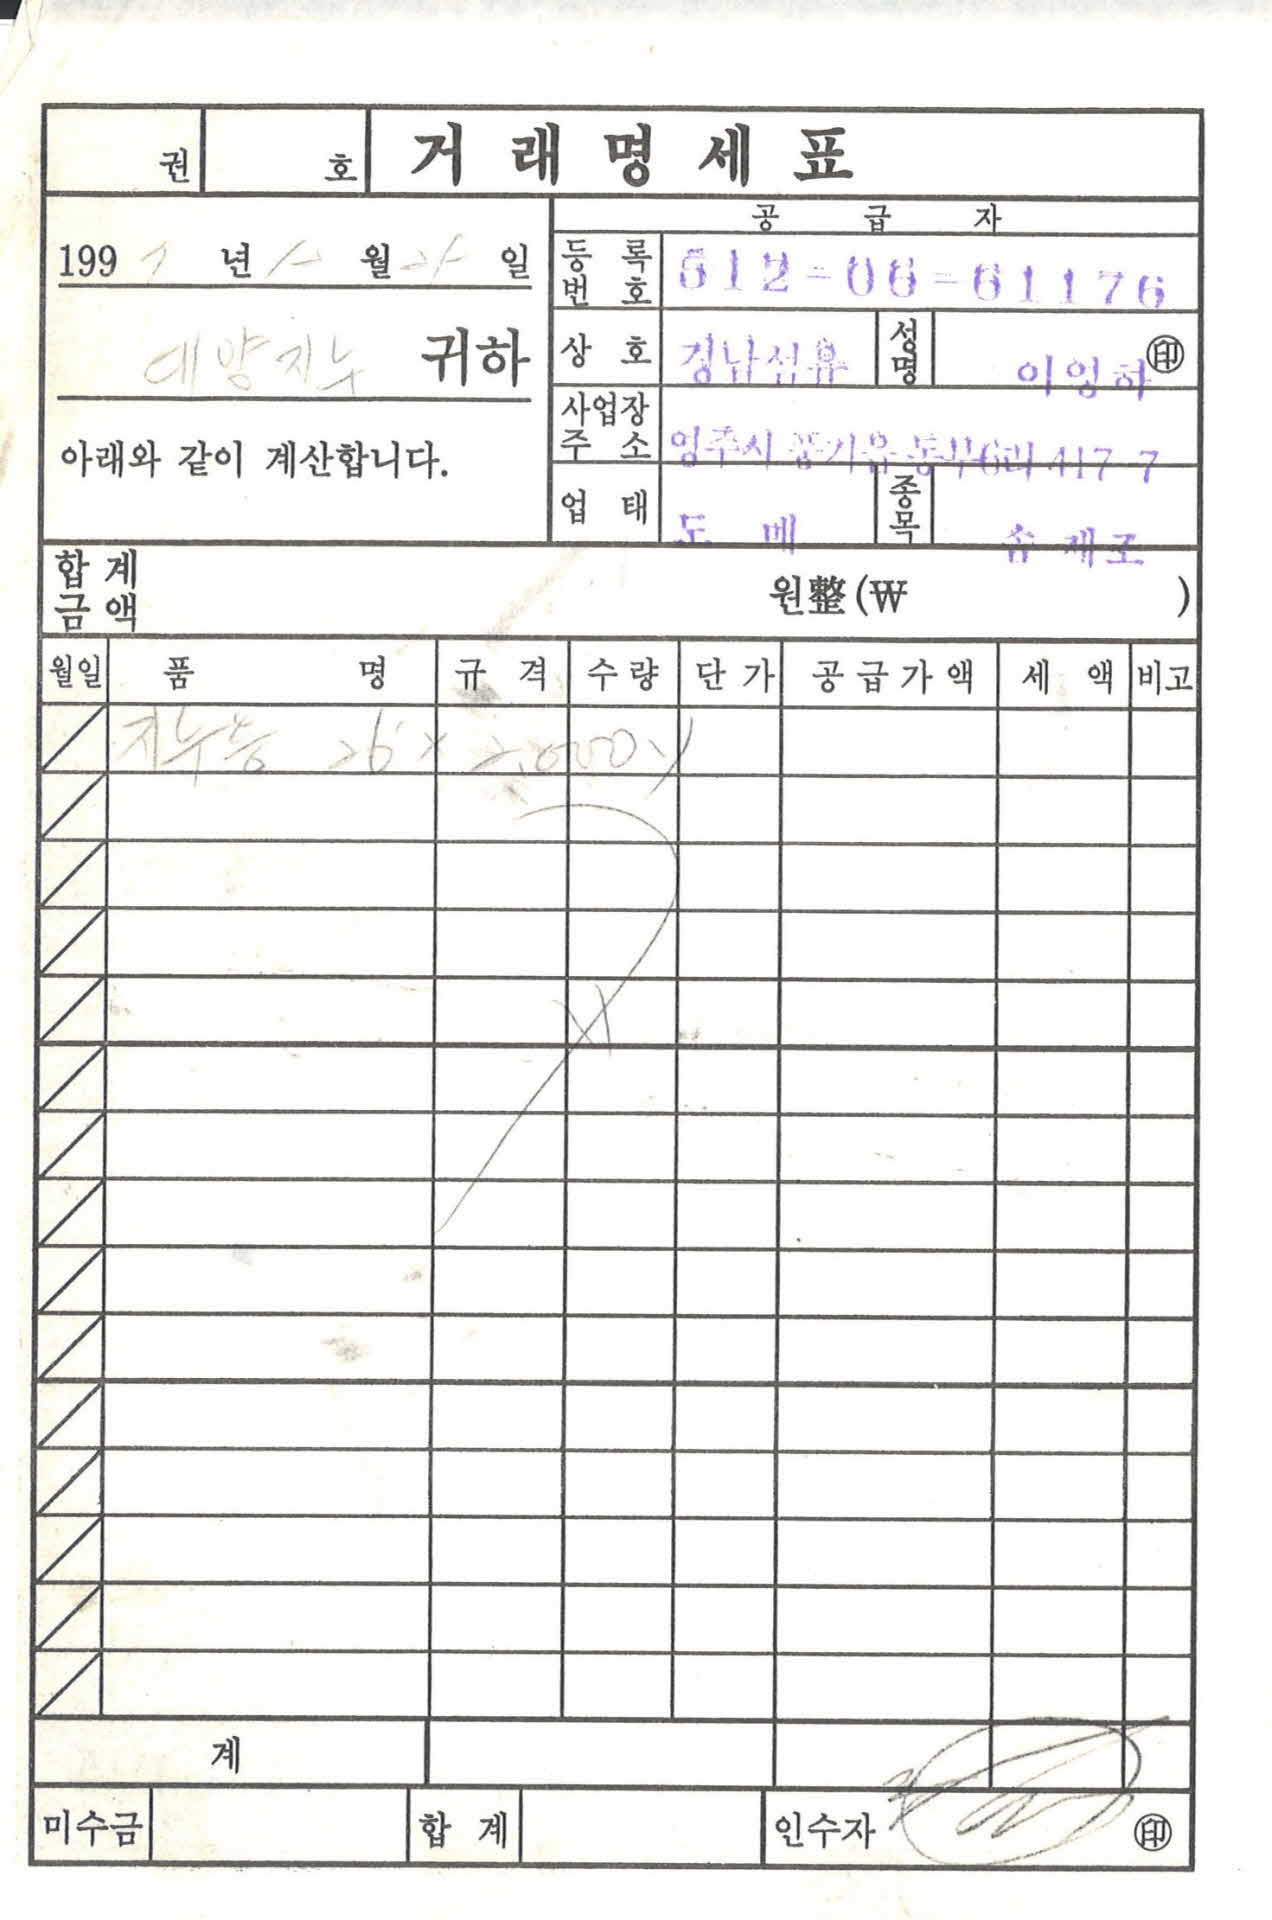 권 호 거래명세표
공급자
199 년 월 일
등록번호 512-06-61176
대양지누 귀하
상호 경남섬유 성명 이영하 印
사업장주소 영주시 풍기읍 동부6리 417-7
아래와 같이 계산합니다.
업태 도매 종목 제조
합계금액 원整(₩ )
월일 품명 규격 수량 단가 공급가액 세액 비고
26 × 2,000y
계
미수금 합계 인수자 印